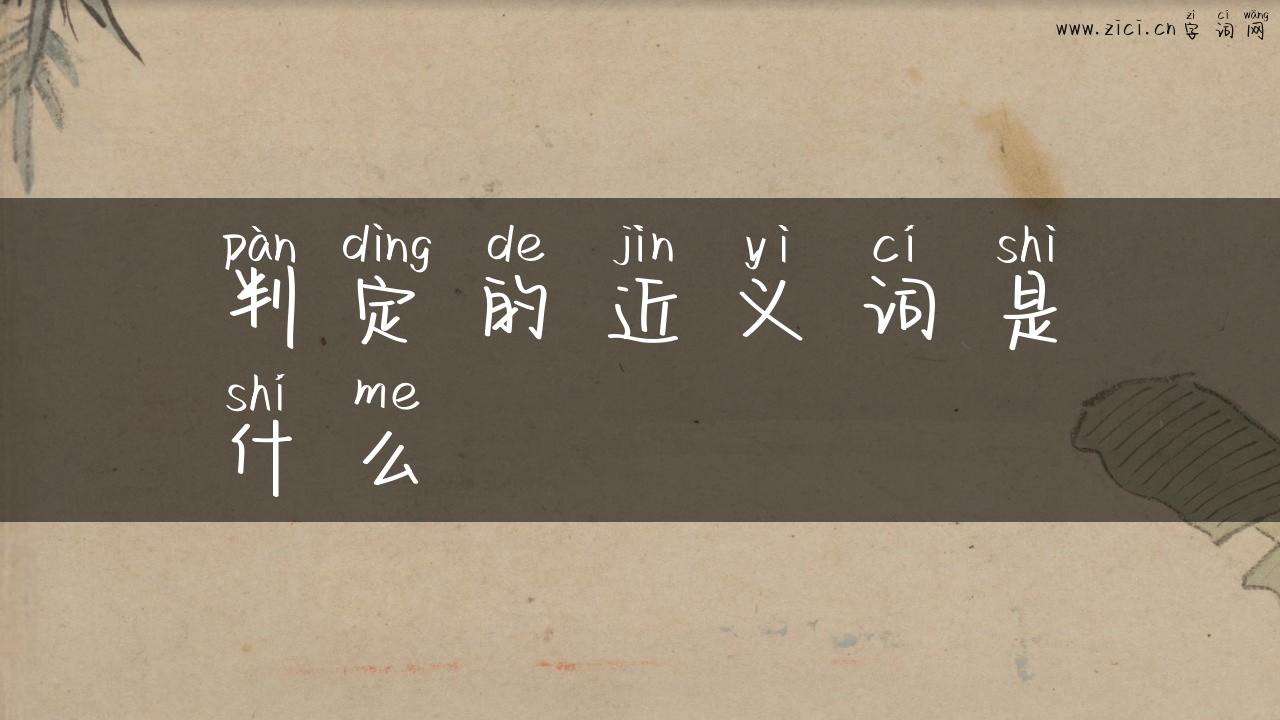 zì cí wǎng
www.zici.cn 字词网
pàn dìng de jìn yì cí shì
判定的近义词是
shí me
什么